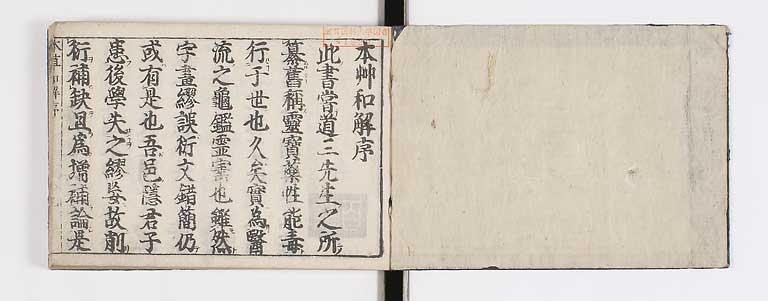 本艸和解序
此書嘗道三先生之所
纂舊稱靈寶藥性能毒
行于世也久矣實為醫
流之龜鑑霊寕也雖然
字畫繆誤衍文錯簡仍
或有是也吾邑隱君子
患後學失之繆妄故削
衍補缺且為増補論是